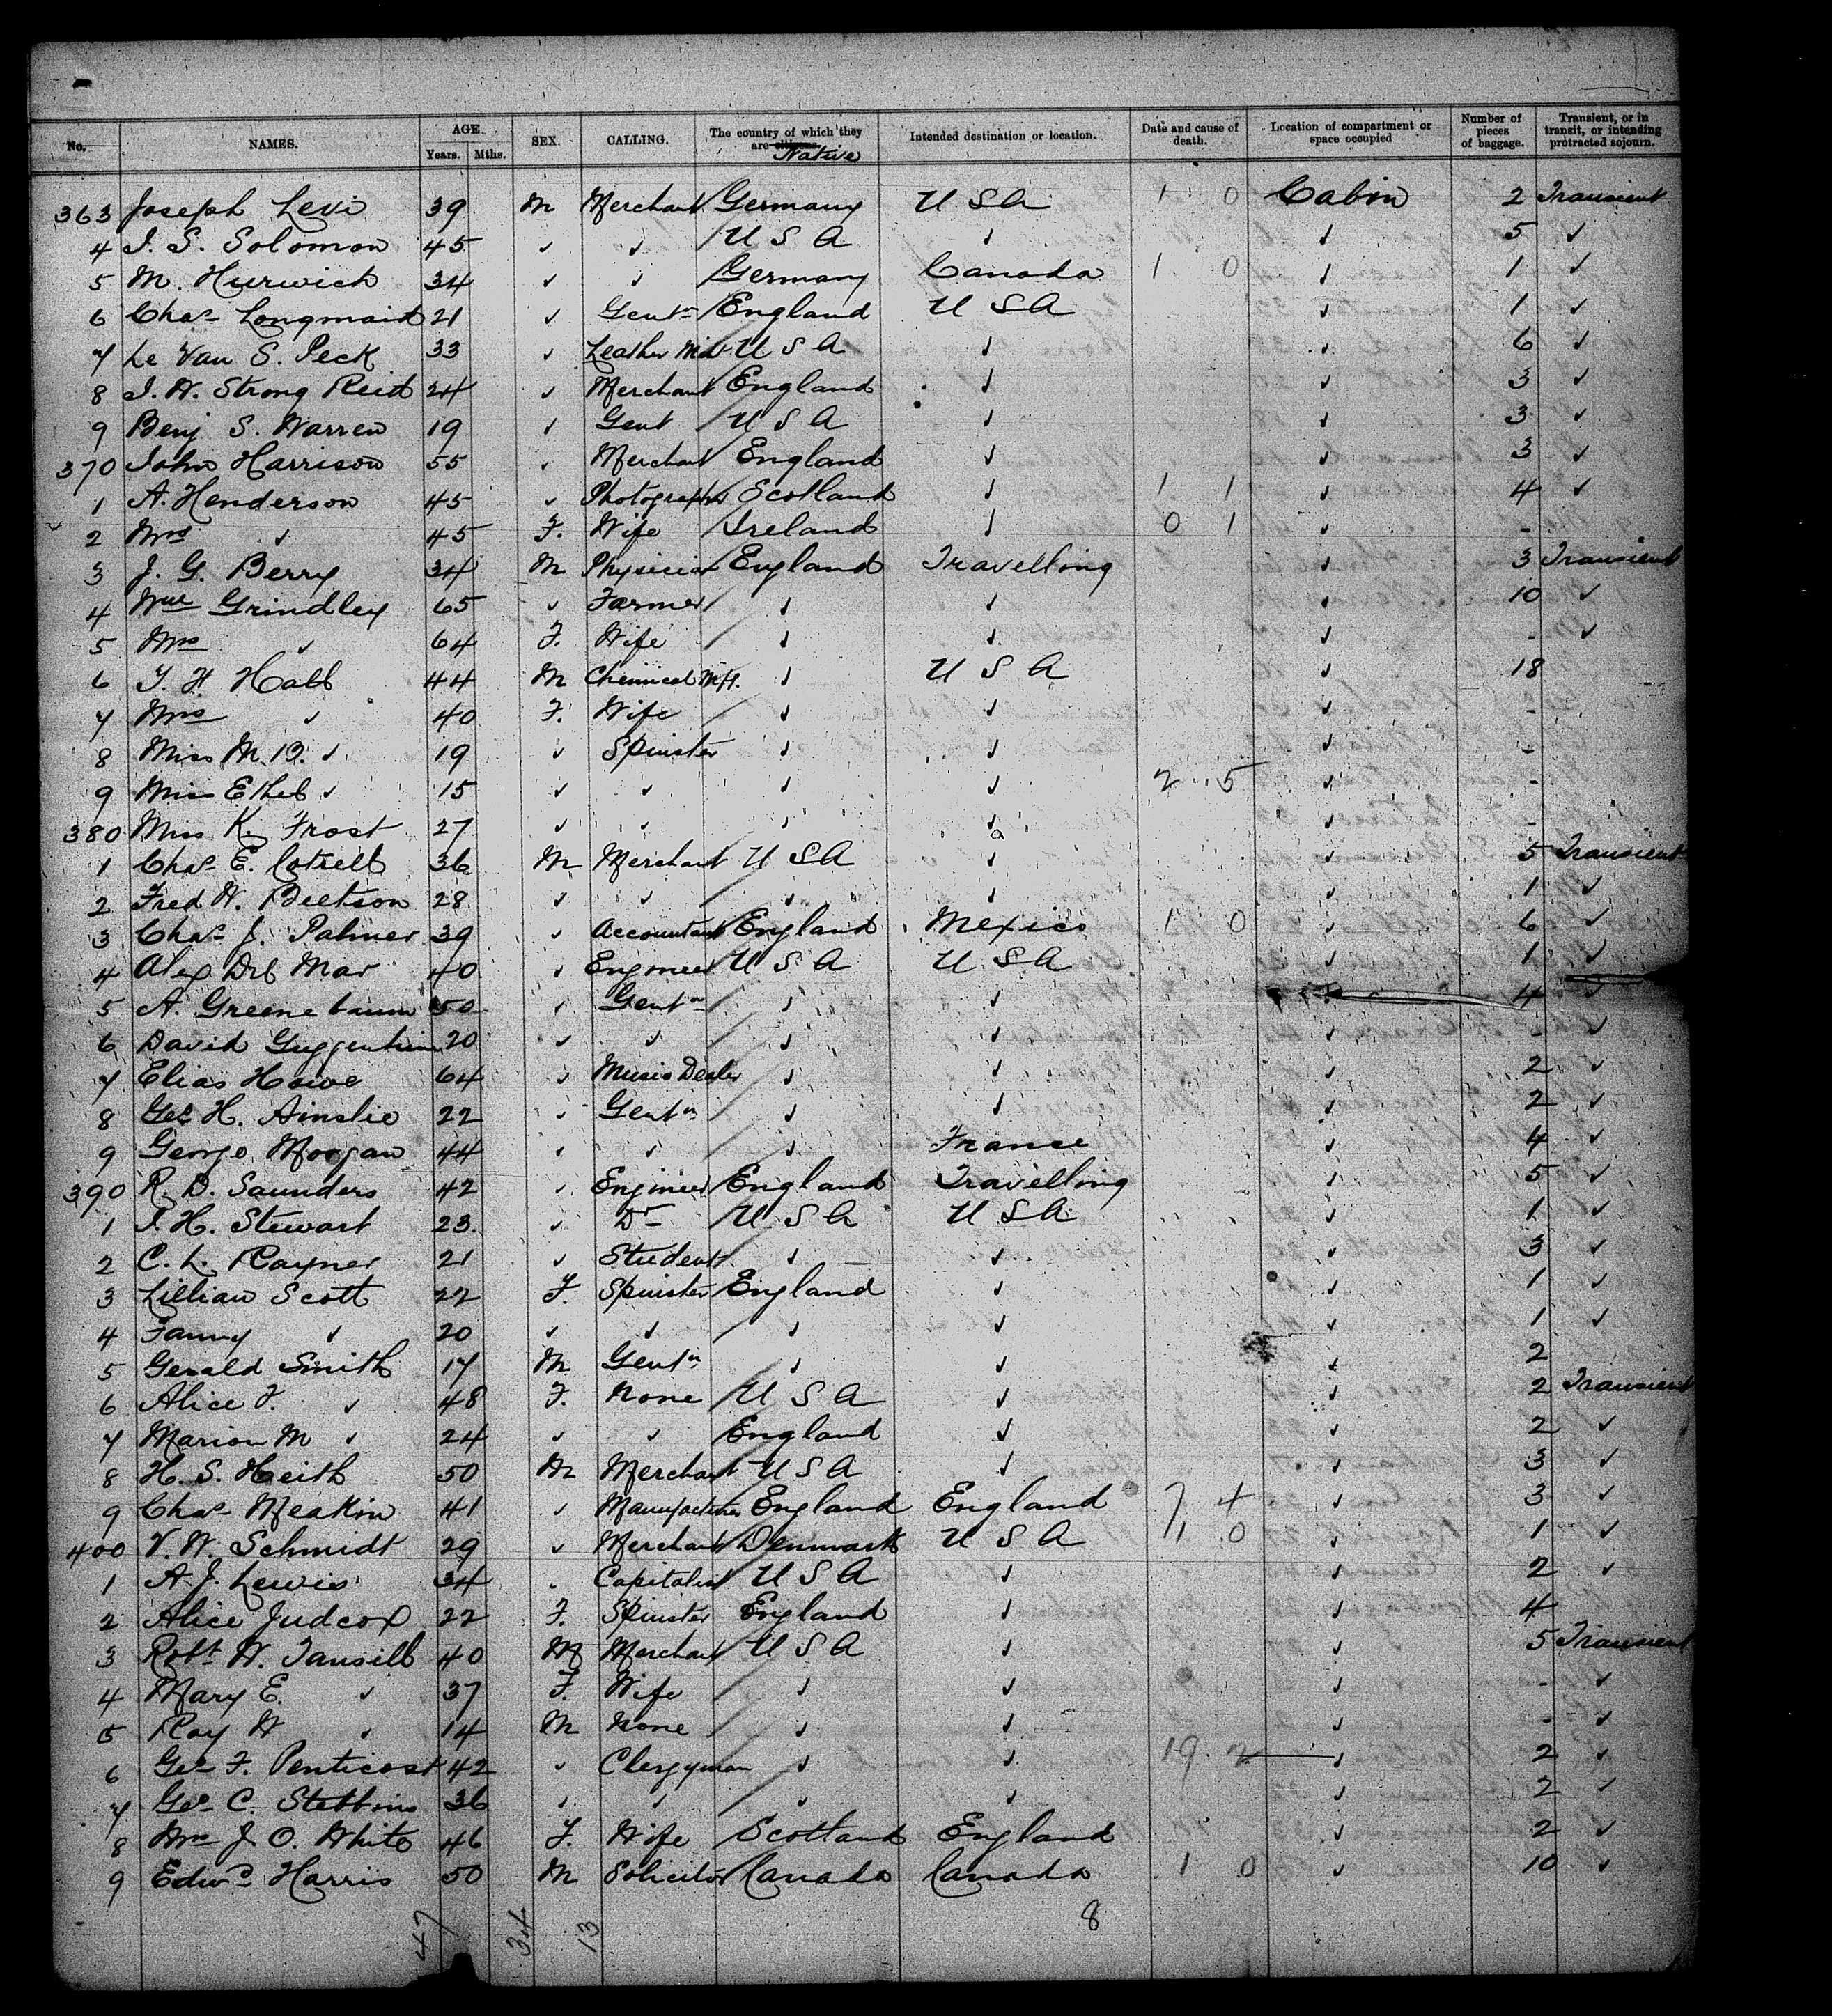 No. NAMES. AGE. Years. Mths. SEX. CALLING. The country of which they are citizens. Native Intended destination or location. Date and cause of death. Location of compartment or space occupied Number of pieces of baggage. Transient, or in transit, or intending protracted sojourn.
363 Joseph Levi 39 M Merchant Germany U S A 1 0 Cabin 2 Transient
4 J. S. Solomon 45 ✓ ✓ U S A ✓ ✓ 5 ✓
5 M. Hurwich 34 ✓ ✓ Germany Canada 1 0 ✓ 1 ✓
6 Chas Longmaid 21 ✓ Gentn England U S A ✓ 1 ✓
7 Le Van S. Peck 33 ✓ Leather U S A ✓ ✓ 6 ✓
8 J. W. Strong Reid 24 ✓ Merchant England ✓ ✓ 3 ✓
9 Benj S. Warren 19 ✓ Gent U S A ✓ ✓ 3 ✓
370 John Harrison 55 ✓ Merchant England ✓ ✓ 3 ✓
1 A. Henderson 45 ✓ Photographer Scotland ✓ 1 1 ✓ 4 ✓
2 Mrs ✓ 45 F. Wife Ireland ✓ 0 1 ✓ -
3 J. G. Berry 34 M Physician England Travelling ✓ 3 Transient
4 Wm Grindley 65 ✓ Farmer ✓ ✓ ✓ 10 ✓
5 Mrs ✓ 64 F. Wife ✓ ✓ ✓ - ✓
6 T. H Hall 44 M Chemical Mft. ✓ U S A ✓ 18
7 Mrs ✓ 40 F. Wife ✓ ✓ ✓ -
8 Miss M. B. ✓ 19 ✓ Spinster ✓ ✓ ✓ -
9 Miss Ethel ✓ 15 ✓ ✓ ✓ ✓ 2 5 ✓ -
380 Miss K. Frost 27 ✓ ✓ ✓ ✓ ✓ -
1 Chas E. Cotrell 36 M Merchant U S A ✓ ✓ 5 Transient
2 Fred W. Beetson 28 ✓ ✓ ✓ ✓ ✓ 1 ✓
3 Chas J. Palmer 39 ✓ Accountant England Mexico 1 0 ✓ 6 ✓
4 Alex Del Mar 40 ✓ Engineer U S A U S A ✓ 1 ✓
5 A. Greenebaum 50 ✓ Gentn ✓ ✓ ✓ 4 ✓
6 David Guggenheim 20 ✓ ✓ ✓ ✓ ✓ - ✓
7 Elias Howe 64 ✓ Music Dealer ✓ ✓ ✓ 2 ✓
8 Geo H. Ainslie 22 ✓ Gentn ✓ ✓ ✓ 2 ✓
9 George Morgan 44 ✓ ✓ ✓ France ✓ 4 ✓
390 R. D. Saunders 42 ✓ Engineer England Travelling ✓ 5 ✓
1 J. H. Stewart 23 ✓ Dr U S A U S A ✓ 1 ✓
2 C. L. Rayner 21 ✓ Student ✓ ✓ ✓ 3 ✓
3 Lillian Scott 22 F. Spinster England ✓ ✓ 1 ✓
4 Fanny ✓ 20 ✓ ✓ ✓ ✓ ✓ 1 ✓
5 Gerald Smith 17 M Gentn ✓ ✓ ✓ 2
6 Alice F. ✓ 48 F. None U S A ✓ ✓ 2 Transient
7 Marion M ✓ 24 ✓ ✓ England ✓ ✓ 2 ✓
8 H. S. Heith 50 M Merchant U S A ✓ ✓ 3 ✓
9 Chas Meakin 41 ✓ Manufacturer England England 7 4 ✓ 3 ✓
400 V. W. Schmidt 29 ✓ Merchant Denmark U S A 1 0 ✓ 1 ✓
1 A. J. Lewis 34 ✓ Capitalist U S A ✓ ✓ 2 ✓
2 Alice Judcox 22 F. Spinster England ✓ ✓ 4
3 Robt W. Tansill 40 M Merchant U S A ✓ ✓ 5 Transient
4 Mary E. ✓ 37 F. Wife ✓ ✓ ✓ - ✓
5 Roy W ✓ 14 M None ✓ ✓ ✓ - ✓
6 Geo F. Penticost 42 ✓ Clergyman ✓ ✓ 19 2 ✓ 2 ✓
7 Geo C. Stebbins 36 ✓ ✓ ✓ ✓ ✓ 2 ✓
8 Mrs J. O. White 46 F. Wife Scotland England ✓ 2 ✓
9 Edwd Harris 50 M Solicitor Canada Canada 1 0 ✓ 10 ✓
47 34 13 8